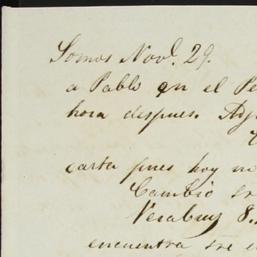 Somos Nov. 29.
a Pablo en el Pe
hora despues. Ay
carta pues hoy m
Cambio
Verabuy 8.
encuentra